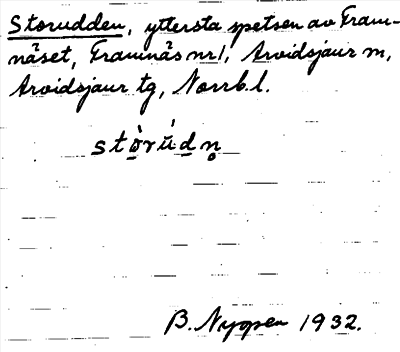 Storudden, yttersta spetsen av Fram-
näset, Framnäs nr 1, Arvidsjaur m,
Arvidsjaur tg, Norrb. l.
stòrúdn̥
B. Nygren 1932.